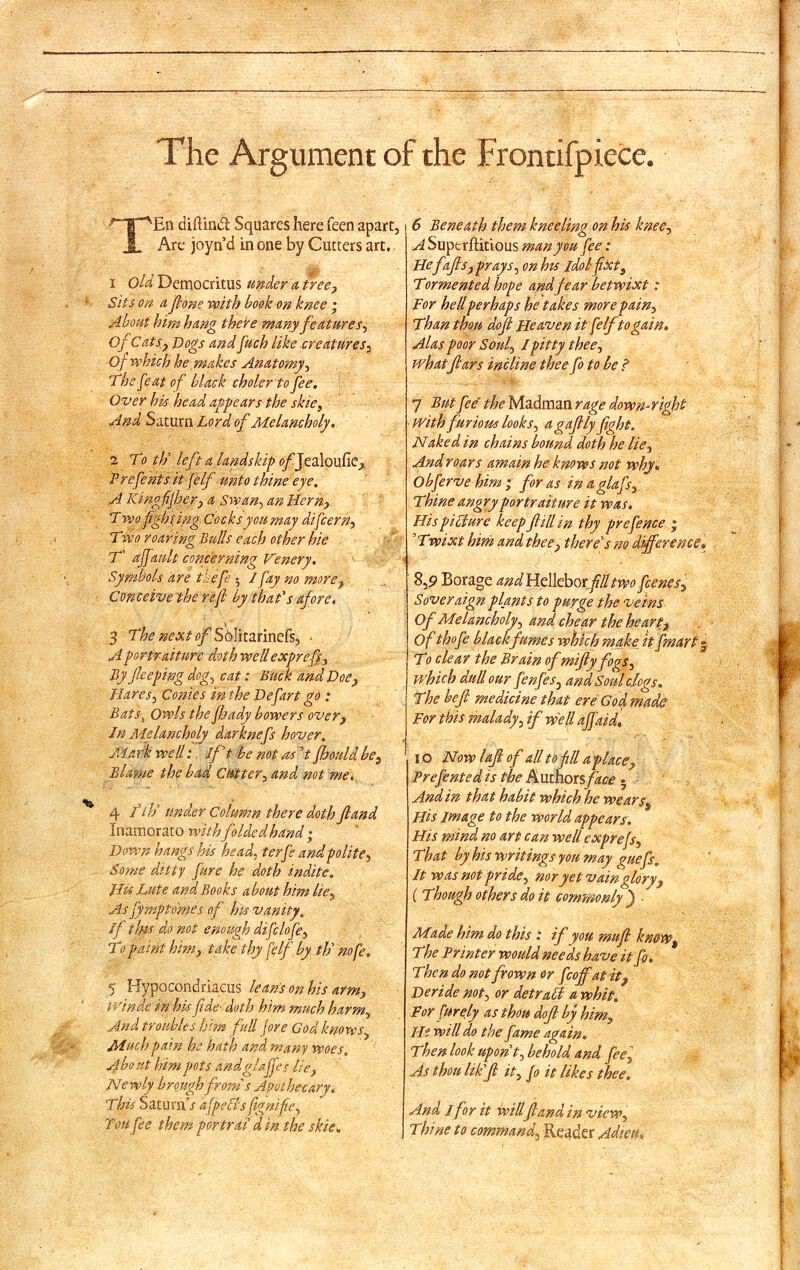 The Argument of the Frontiſpiece.
TEn diſtinct Squares here ſeen apart,
Are joyn'd in one by Cutters art.
1 Old Democritus under a tree,
Sits on a ſtone with book on knee ;
About him hang there many features,
Of Cats, Dogs and ſuch like creatures,
Of which he makes Anatomy,
The ſeat of black choler to ſee.
Over his head appears the skie,
And Saturn Lord of Melancholy.
2 To th' left a landskip of Jealouſie,
Preſents it ſelf unto thine eye.
A Kingfiſher, a Swan, an Hern,
Two fighting Cocks you may diſcern,
Two roaring Bulls each other hie
T' aſſault concerning Venery.
Symbols are theſe ; I ſay no more,
Conceive the reſt by that's afore.
3 The next of Solitarineſs,
A portraiture doth well expreſs,
By ſleeping dog, cat : Buck and Doe,
Hares, Conies in the Deſart go :
Bats, Owls the ſhady bowers over,
In Melancholy darkneſs hover.
Mark well : If't be not as 't ſhould be,
Blame the bad Cutter, and not me.
4 I'th' under Column there doth ſtand
Inamorato with folded hand ;
Down hangs his head, terſe and polite,
Some ditty ſure he doth indite.
His Lute and Books about him lie,
As ſymptomes of his vanity.
If this do not enough diſcloſe,
To paint him, take thy ſelf by th' noſe.
5 Hypocondriacus leans on his arm,
Winde in his ſide doth him much harm,
And troubles him full ſore God knows,
Much pain he hath and many woes.
About him pots and glaſſes lie,
Newly brough from's Apothecary.
This Saturn's aſpects ſignifie,
You ſee them portrai'd in the skie.
6 Beneath them kneeling on his knee,
A Superſtitious man you ſee :
He faſts, prays, on his Idol fixt,
Tormented hope and fear betwixt :
For hell perhaps he takes more pain,
Than thou doſt Heaven it ſelf to gain.
Alas poor Soul, I pitty thee,
What ſtars incline thee ſo to be ?
7 But ſee the Madman rage down-right
With furious looks, a gaſtly ſight.
Naked in chains bound doth he lie,
And roars amain he knows not why.
Obſerve him ; for as in a glaſs,
Thine angry portraiture it was.
His picture keep ſtill in thy preſence ;
'Twixt him and thee, there's no difference.
8,9 Borage and Hellebor fill two ſcenes,
Soveraign plants to purge the veins
Of Melancholy, and chear the heart,
Of thoſe black fumes which make it ſmart ;
To clear the Brain of miſty fogs,
Which dull our ſenſes, and Soul clogs.
The beſt medicine that ere God made
For this malady, if well aſſaid.
10 Now laſt of all to fill a place,
Preſented is the Authors face ;
And in that habit which he wears,
His Image to the world appears.
His mind no art can well expreſs,
That by his writings you may gueſs.
It was not pride, nor yet vain glory,
( Though others do it commonly )
Made him do this : if you muſt know,
The Printer would needs have it ſo.
Then do not frown or ſcoff at it,
Deride not, or detract a whit.
For ſurely as thou doſt by him,
He will do the ſame again.
Then look upon't, behold and ſee,
As thou lik'ſt it, ſo it likes thee.
And I for it will ſtand in view,
Thine to command, Reader Adieu.